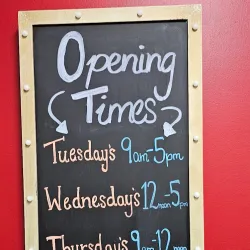 Opening
Times
Tuesday's 9am-5pm
Wednesday's 12noon-5pm
Thursday's 9am-12noon